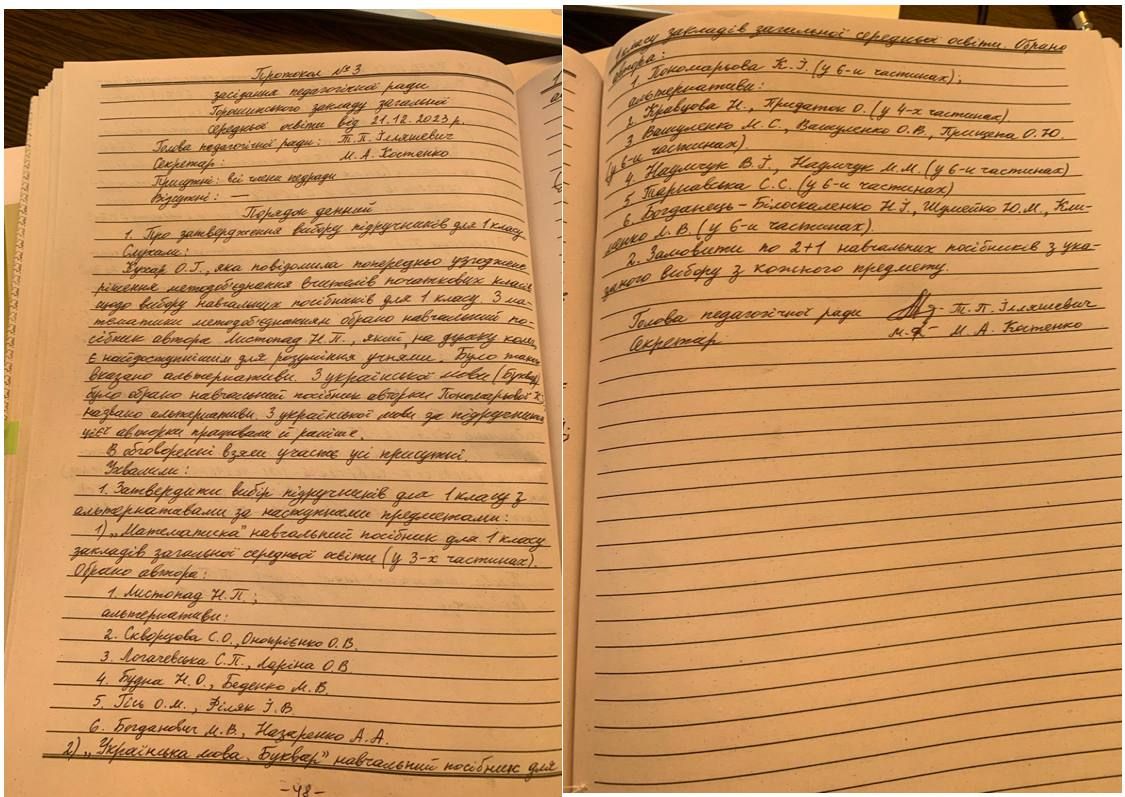 Протокол № 3
засідання педагогічної ради
Горошинського закладу загальної
середньої освіти від 21.12.2023 р.
Голова педагогічної ради: Т.П. Ілляшевич
Секретар: М.А. Костенко
Присутні: всі члени педради
Відсутні: —
Порядок денний
1. Про затвердження вибору підручників для 1 класу
Слухали:
Кухар О.Г., яка повідомила попередньо узгоджене
рішення методоб'єднання вчителів початкових класів
щодо вибору навчальних посібників для 1 класу. З ма-
тематики методоб'єднанням обрано навчальний по-
сібник автора Листопад Н.П., який, на думку колег,
є найдоступнішим для розуміння учнями. Було також
вказано альтернативи. З української мови (Буквар)
було обрано навчальний посібник авторки Пономарьової К.
названо альтернативи. З української мови за підручником
цієї авторки працювали й раніше.
В обговоренні взяли участь усі присутні.
Ухвалили:
1. Затвердити вибір підручників для 1 класу з
альтернативами за наступними предметами:
1) „Математика" навчальний посібник для 1 класу
закладів загальної середньої освіти (у 3-х частинах).
Обрано автора:
1. Листопад Н.П.;
альтернативи:
2. Скворцова С.О., Онопрієнко О.В.
3. Логачевська С.П., Ларіна О.В
4. Будна Н.О., Беденко М.В.
5. Гісь О.М., Філяк І.В
6. Богданович М.В., Назаренко А.А.
2) „Українська мова. Буквар" навчальний посібник для
-48-
1 класу закладів загальної середньої освіти. Обрано
автора:
1. Пономарьова К.І. (у 6-и частинах);
альтернативи:
2. Кравцова Н., Придаток О. (у 4-х частинах)
3. Вашуленко М.С., Вашуленко О.В., Прищепа О.Ю.
(у 6-и частинах)
4. Наумчук В.І., Наумчук М.М. (у 6-и частинах)
5 Тарнавська С.С. (у 6-и частинах)
6. Богданець-Білоскаленко Н.І., Шумейко Ю.М., Кли-
менко Л.В. (у 6-и частинах).
2. Замовити по 2+1 навчальних посібників з ука-
заного вибору з кожного предмету.
Голова педагогічної ради Т.П. Ілляшевич
Секретар М.А. Костенко